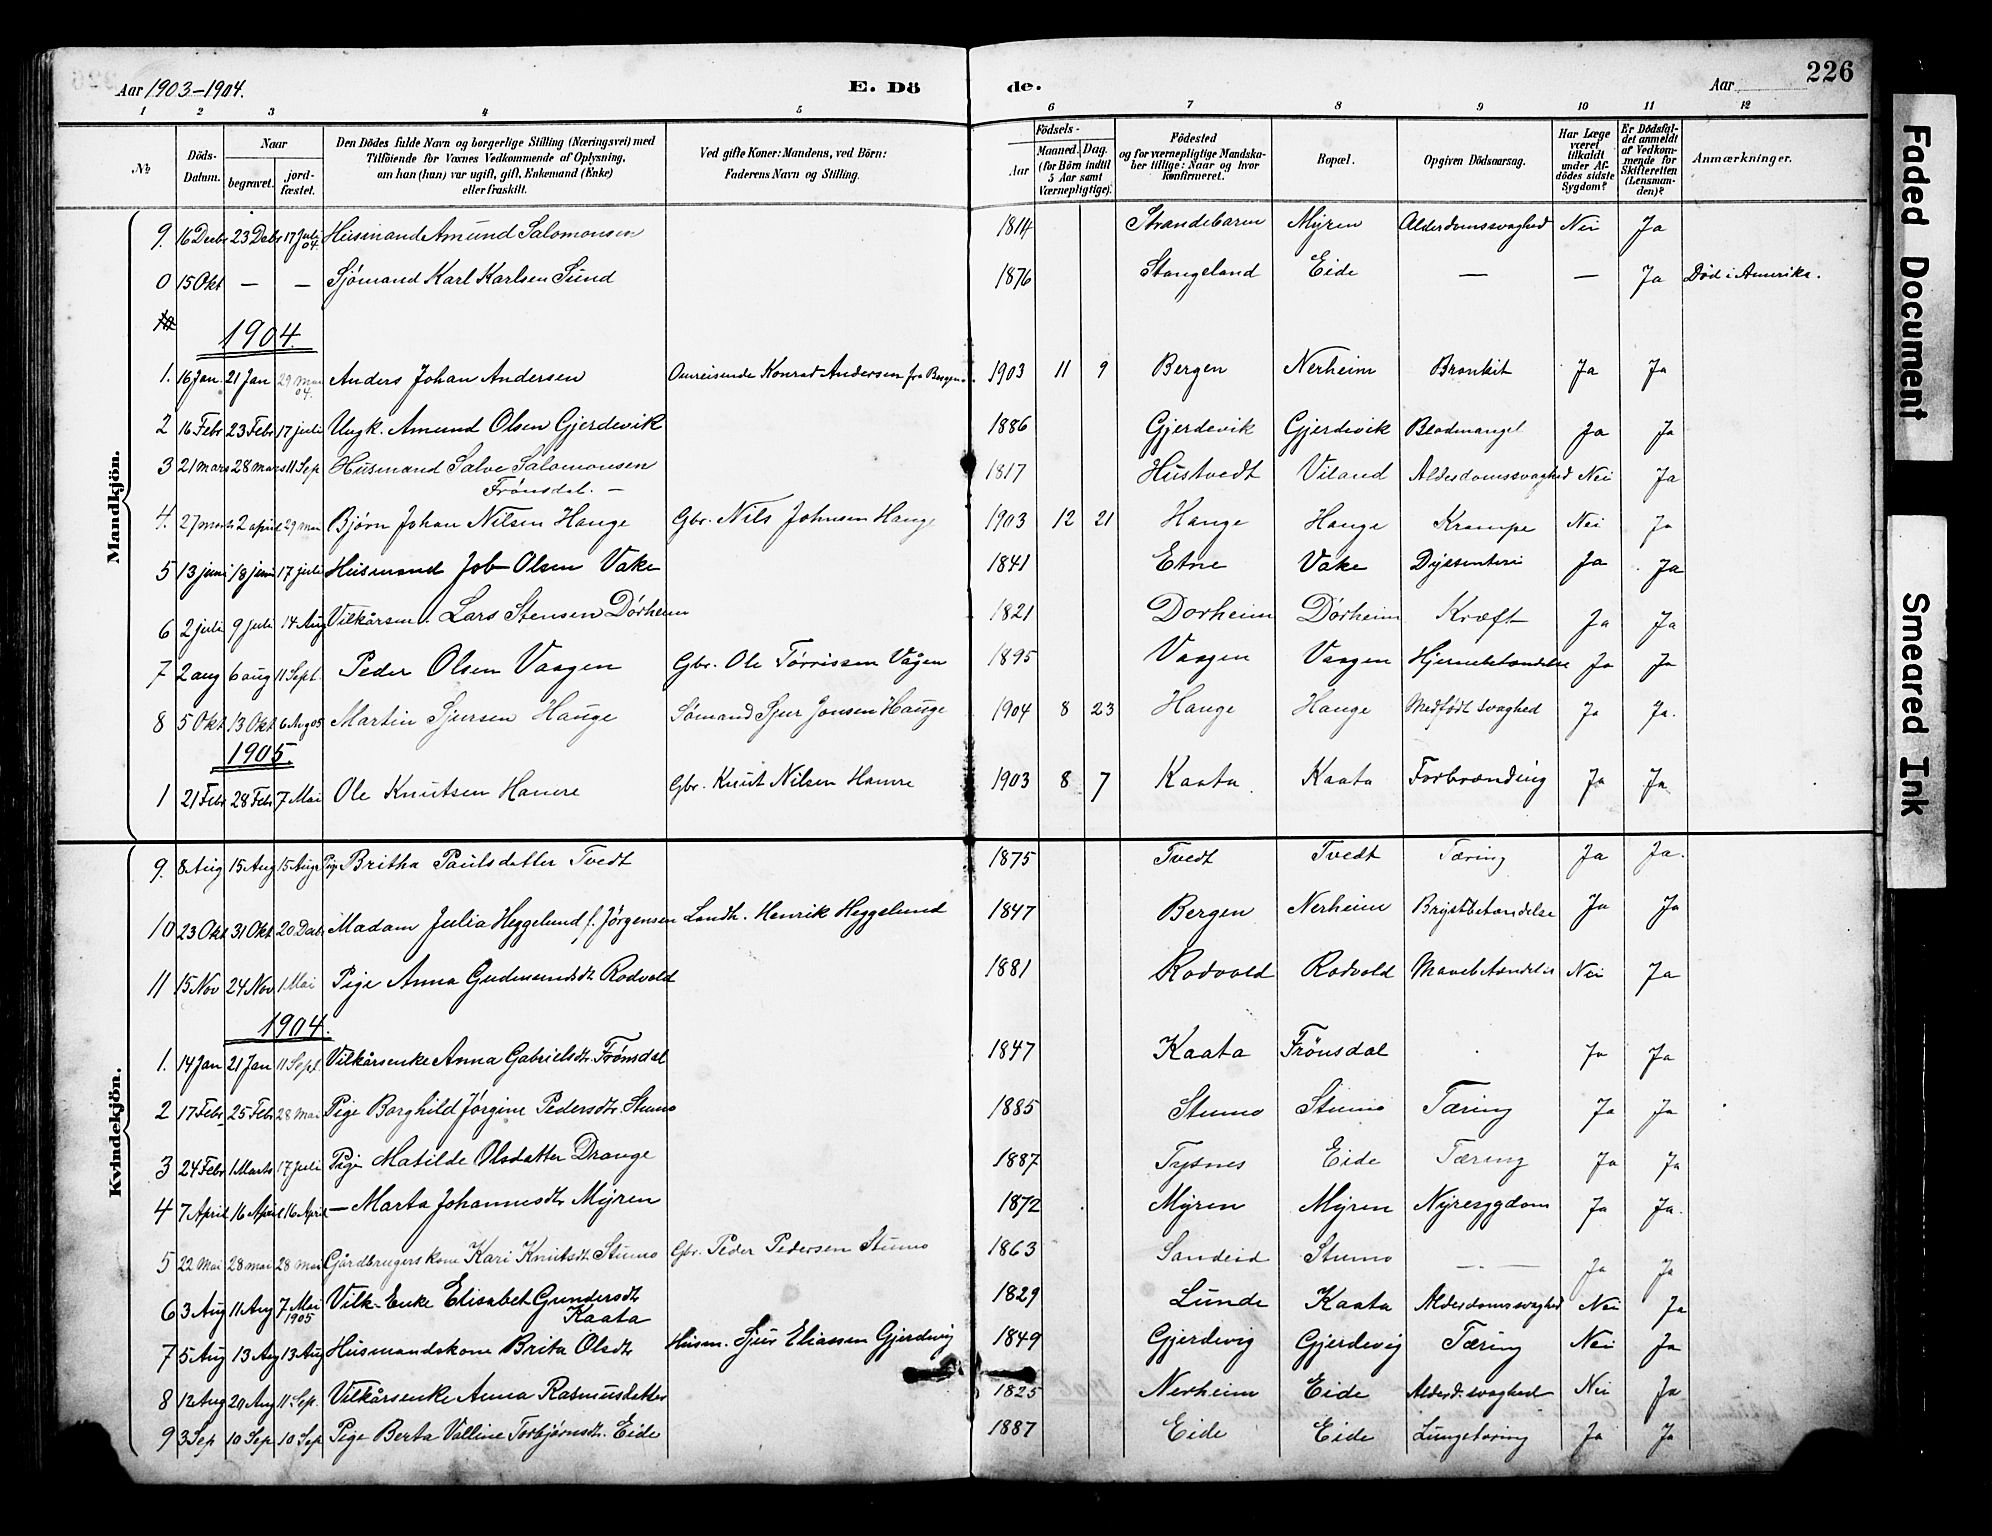 Aar 1903-1904. E. Dö de. Aar 226
1 2 3 4 5 6 7 8 9 10 11 12
№ Döds-Datum. Naar begravet. jord-fæstet. Den Dödes fulde Navn og borgerlige Stilling (Næringsvei) med Tilföiende for Voxnes Vedkommende af Oplysning, om han (hun) var ugift, gift, Enkemand (Enke) eller fraskilt. Ved gifte Koner: Mandens, ved Börn: Faderens Navn og Stilling. Födsels- Aar Maaned. Dag. (for Börn indtil 5 Aar samt Værnepligtige). Födested og for værnepligtige Mandskaber tillige: Naar og hvor konfirmeret. Bopæl. Opgiven Dödsaarsag. Har Læge været tilkaldt under Afdödes sidste Sygdom? Er Dödsfaldet anmeldt af Vedkommende for Skifteretten (Lensmanden)? Anmærkninger.
Mandkjön.
9. 16 Decbr 23 Debr 17 Juli 04. Husmand Amund Salomonsen 1814 Strandebarm Myren Alderdomssvaghed Nei Ja
0 15 Okt — — Sjömand Karl Karlsen Sund 1876 Stangeland Eide — — Ja Död i Amerika.
1904.
1. 16 Jan. 21 Jan 29 Mai 04. Anders Johan Andersen Omreisende Konrad Andersen fra Bergen. 1903 11 9 Bergen Nerheim Bronkit Ja Ja
2 16 Febr 23 Febr 17 juli Ungk. Amund Olsen Gjerdevik 1886 Gjerdevik Gjerdevik Blodmangel Ja Ja
3 21 mars 28 mars 11 Sep Husmand Salve Salomonsen Frönsdal. — 1817 Hustvedt Viland Alderdomssvaghed Nei Ja
4. 27 mars 2 april 29 mai Bjørn Johan Nilsen Hauge Gbr. Nils Johnsen Hauge 1903 12 21 Hauge Hauge Krampe Nei Ja
5 13 juni 18 juni 17 juli Husmand Job Olsen Vake 1841 Etne Vake Dyssenteri Ja Ja
6 2 juli 9 juli 14 Aug Vilkårsm. Lars Stensen Dörheim 1821 Dorheim Dörheim Kræft Ja Ja
7 2 aug 6 aug 11 Sept. Peder Olsen Vaagen Gbr. Ole Törrissen Vågen 1895 Vaagen Vaagen Hjernebetændelse Ja Ja
8 5 Okt 13 Okt 6 Aug 05 Martin Sjursen Hauge Sömand Sjur Jonsen Hauge 1904 8 23 Hauge Hauge Medfödt svaghed Ja Ja.
1905.
1 21 Febr 28 Febr 7 Mai Ole Knutsen Hamre Gbr. Knut Nilsen Hamre 1903 8 7 Kaata Kaata Forbrænding Ja Ja
Kvindekjön.
9. 8 Aug 15 Aug 15 Aug Pige Britha Paulsdatter Tvedt 1875 Tvedt Tvedt Tæring Ja Ja.
10 23 Okt 31 Okt 20 Decbr Madam Julia Heggelund f. Jørgensen Landh. Henrik Heggelund 1847 Bergen Nerheim Brystbetændelse Ja Ja
11 15 Nov 24 Nov 1 Mai Pige Anna Gudmundsdt Rodvold 1881 Rodvold Rodvold Mavebetændelse Nei Ja
1904.
1. 14 Jan 21 Jan 11 Sept. Vilkårsenke Anna Gabrielsdt. Frönsdal 1847 Kaata Frönsdal Ja Ja
2 17 Febr 25 Febr 28 Mai Pige Borghild Jörgine Pedersdtr. Stumo 1885 Stumo Stumo Tæring Ja Ja
3 24 Febr 1 Marts 17 Juli Pige Matilde Olsdatter Drange 1887 Tysnes Eide Tæring Ja Ja
4 7 April 16 April 16 April — Marta Johannesdtr Myren 1872 Myren Myren Nyresygdom Ja Ja.
5 22 Mai 28 mai 28 mai Gårdbrugerskone Kari Knutsdt Stumo Gbr. Peder Pedersen Stumo 1863 Sandeid Stumo — Ja Ja
6 3 Aug 11 Aug 7 Mai 1905 Vilk. Enke Elisabet Gundersdt Kaata 1829 Lunde Kaata Alderdomssvaghed Nei Ja
7 5 Aug 13 Aug 13 Aug Husmandskone Brita Olsdtr Husm. Sjur Eliassen Gjerdevig 1849 Gjerdevig Gjerdevig Tæring Nei Ja
8 12 Aug 20 Aug 11 Sep. Vilkårsenke Anna Rasmusdatter 1825 Nerheim Eide Alderd. svaghed Nei Ja
9 3 Sep 10 Sep 10 Sep Pige Berta Valline Torbjørnsdt. Eide 1887 Eide Eide Lungetæring Ja Ja
Faded Document
Smeared Ink